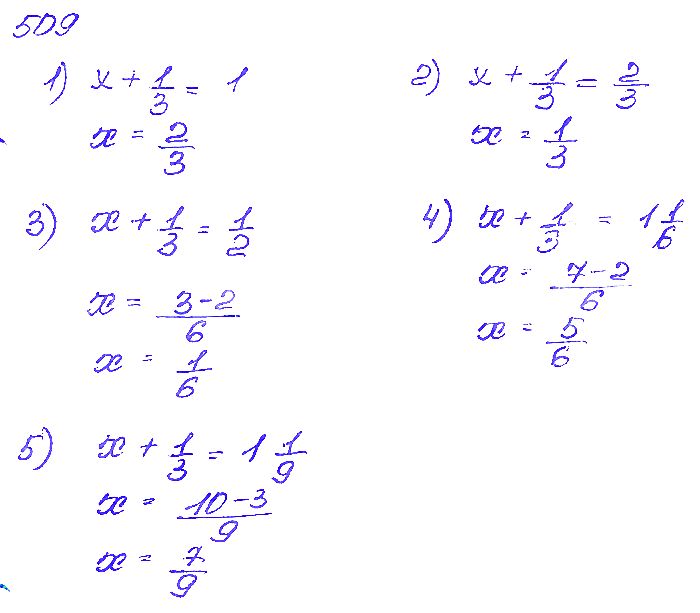 509
1) x + 1/3 = 1
x = 2/3
2) x + 1/3 = 2/3
x = 1/3
3) x + 1/3 = 1/2
x = (3-2)/6
x = 1/6
4) x + 1/3 = 1 1/6
x = (7-2)/6
x = 5/6
5) x + 1/3 = 1 1/9
x = (10-3)/9
x = 7/9